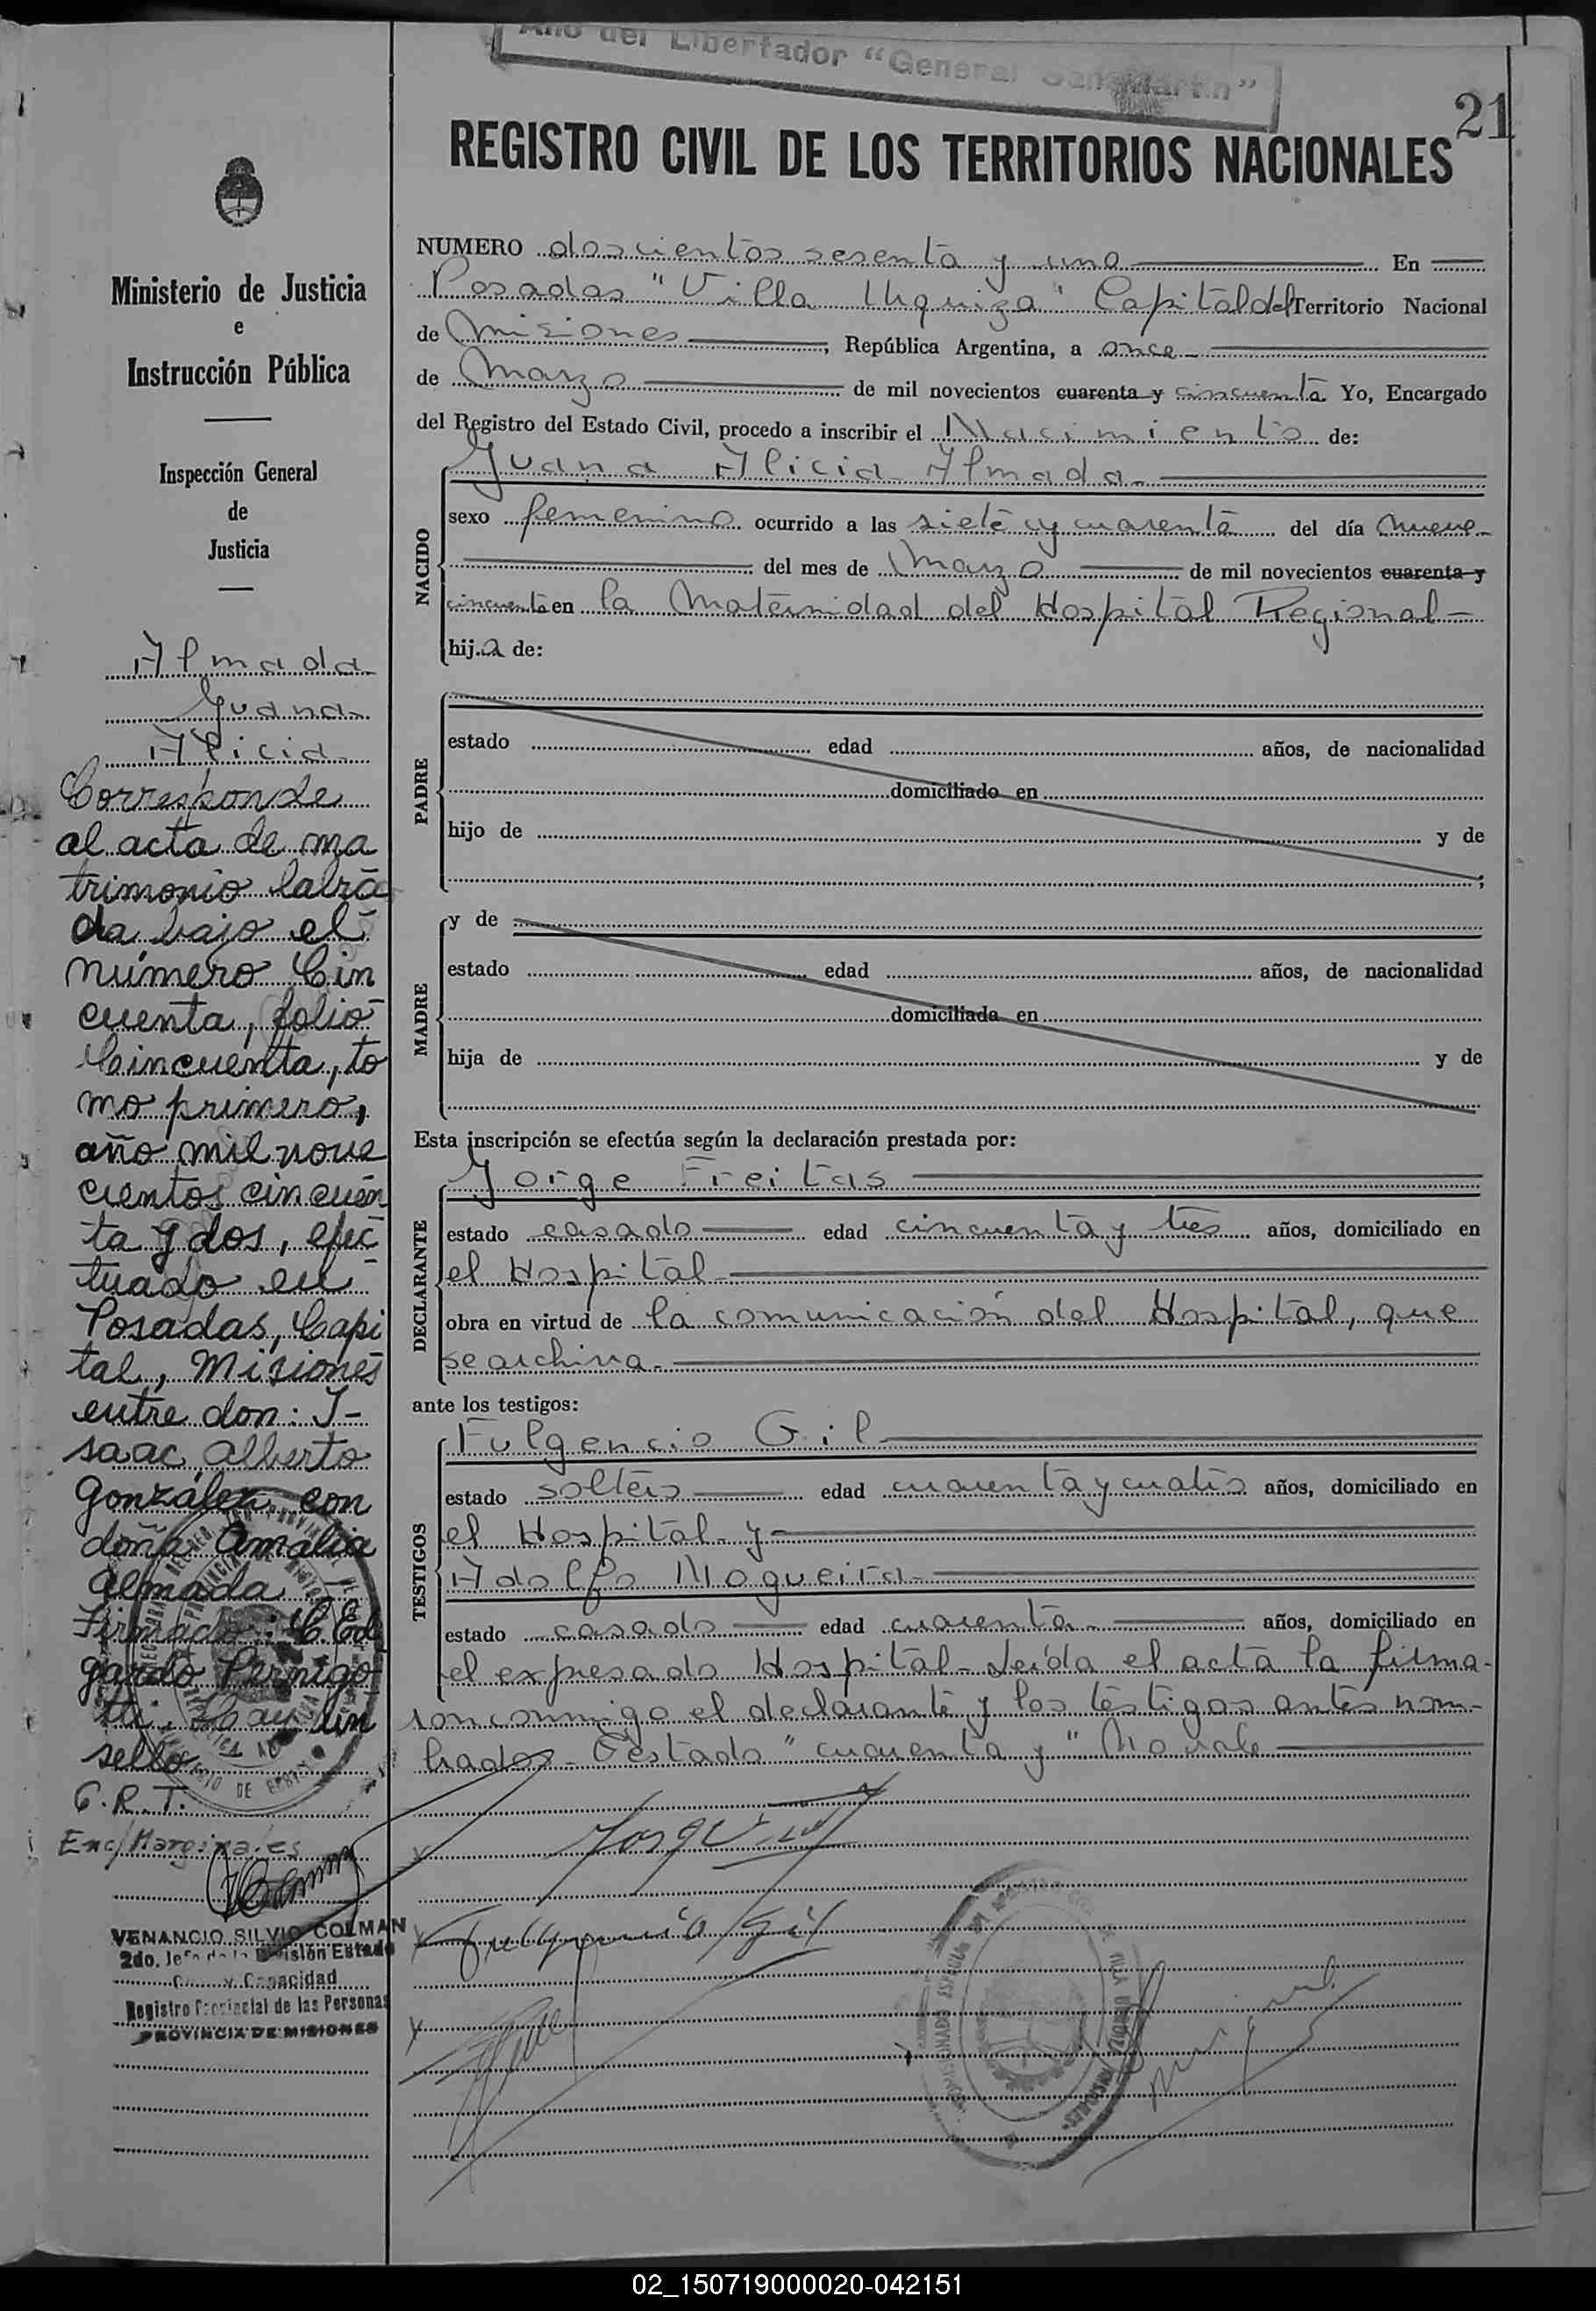 Año del Libertador "General San Martín"
21
REGISTRO CIVIL DE LOS TERRITORIOS NACIONALES
Ministerio de Justicia
e
Instrucción Pública
Inspección General
de
Justicia
Almada
Juana
Alicia
Corresponde
al acta de ma
trimonio labra
da bajo el
número Cin
cuenta, folio
Cincuenta, to
mo primero,
año mil nove
cientos cincuen
ta y dos, efec
tuado en
Posadas, Capi
tal, Misiones
entre don: I-
saac Alberto
González con
doña Amalia
Almada -
Firmado: C. Ed
gardo Pernigo
tti. Hay un
sello
C.R.T.
Enc/Marginales
VENANCIO SILVIO COLMAN
2do. Jefe de la División Estado
y Capacidad
Registro Provincial de las Personas
PROVINCIA DE MISIONES
NUMERO doscientos sesenta y uno En
Posadas "Villa Urquiza" Capital del Territorio Nacional
de Misiones, República Argentina, a once
de Marzo de mil novecientos cuarenta y cincuenta Yo, Encargado
del Registro del Estado Civil, procedo a inscribir el Nacimiento de:
Juana Alicia Almada
NACIDO
sexo femenino ocurrido a las siete y cuarenta del día nueve
del mes de Marzo de mil novecientos cuarenta y
cincuenta en la Maternidad del Hospital Regional
hija de:
PADRE
estado edad años, de nacionalidad
domiciliado en
hijo de y de
;
MADRE
y de
estado edad años, de nacionalidad
domiciliada en
hija de y de
Esta inscripción se efectúa según la declaración prestada por:
DECLARANTE
Jorge Freitas
estado casado edad cincuenta y tres años, domiciliado en
el Hospital
obra en virtud de la comunicación del Hospital, que
se archiva.
ante los testigos:
TESTIGOS
Fulgencio Gil
estado soltero edad cuarenta y cuatro años, domiciliado en
el Hospital y
Adolfo Nogueira
estado casado edad cuarenta años, domiciliado en
el expresado Hospital - Leída el acta la firma-
ron conmigo el declarante y los testigos antes nom-
brados - Testado "cuarenta y" No vale
Fulgencio Gil
02_150719000020-042151